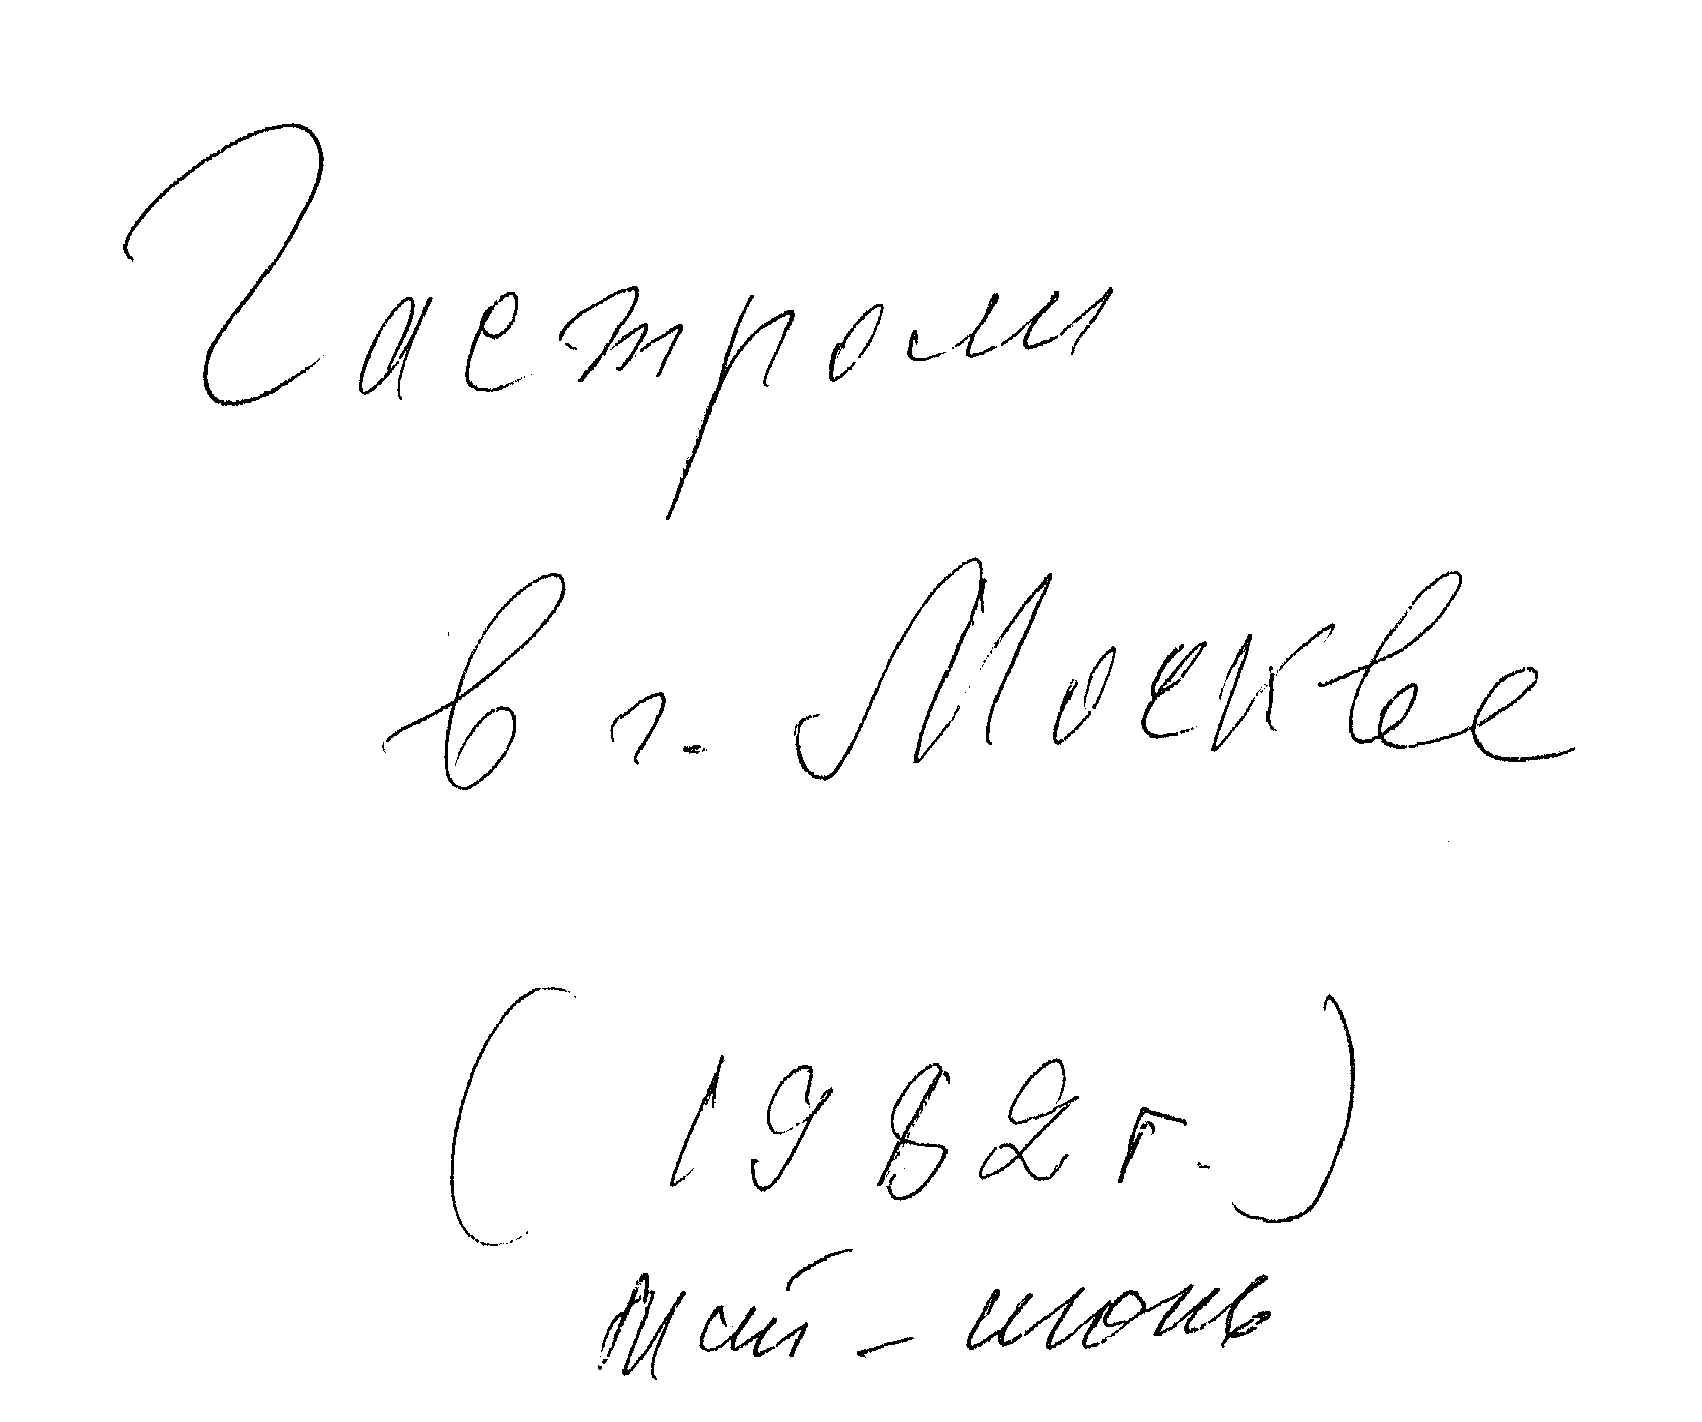 Гастроли
в г. Москве
(1982 г.)
май - июнь